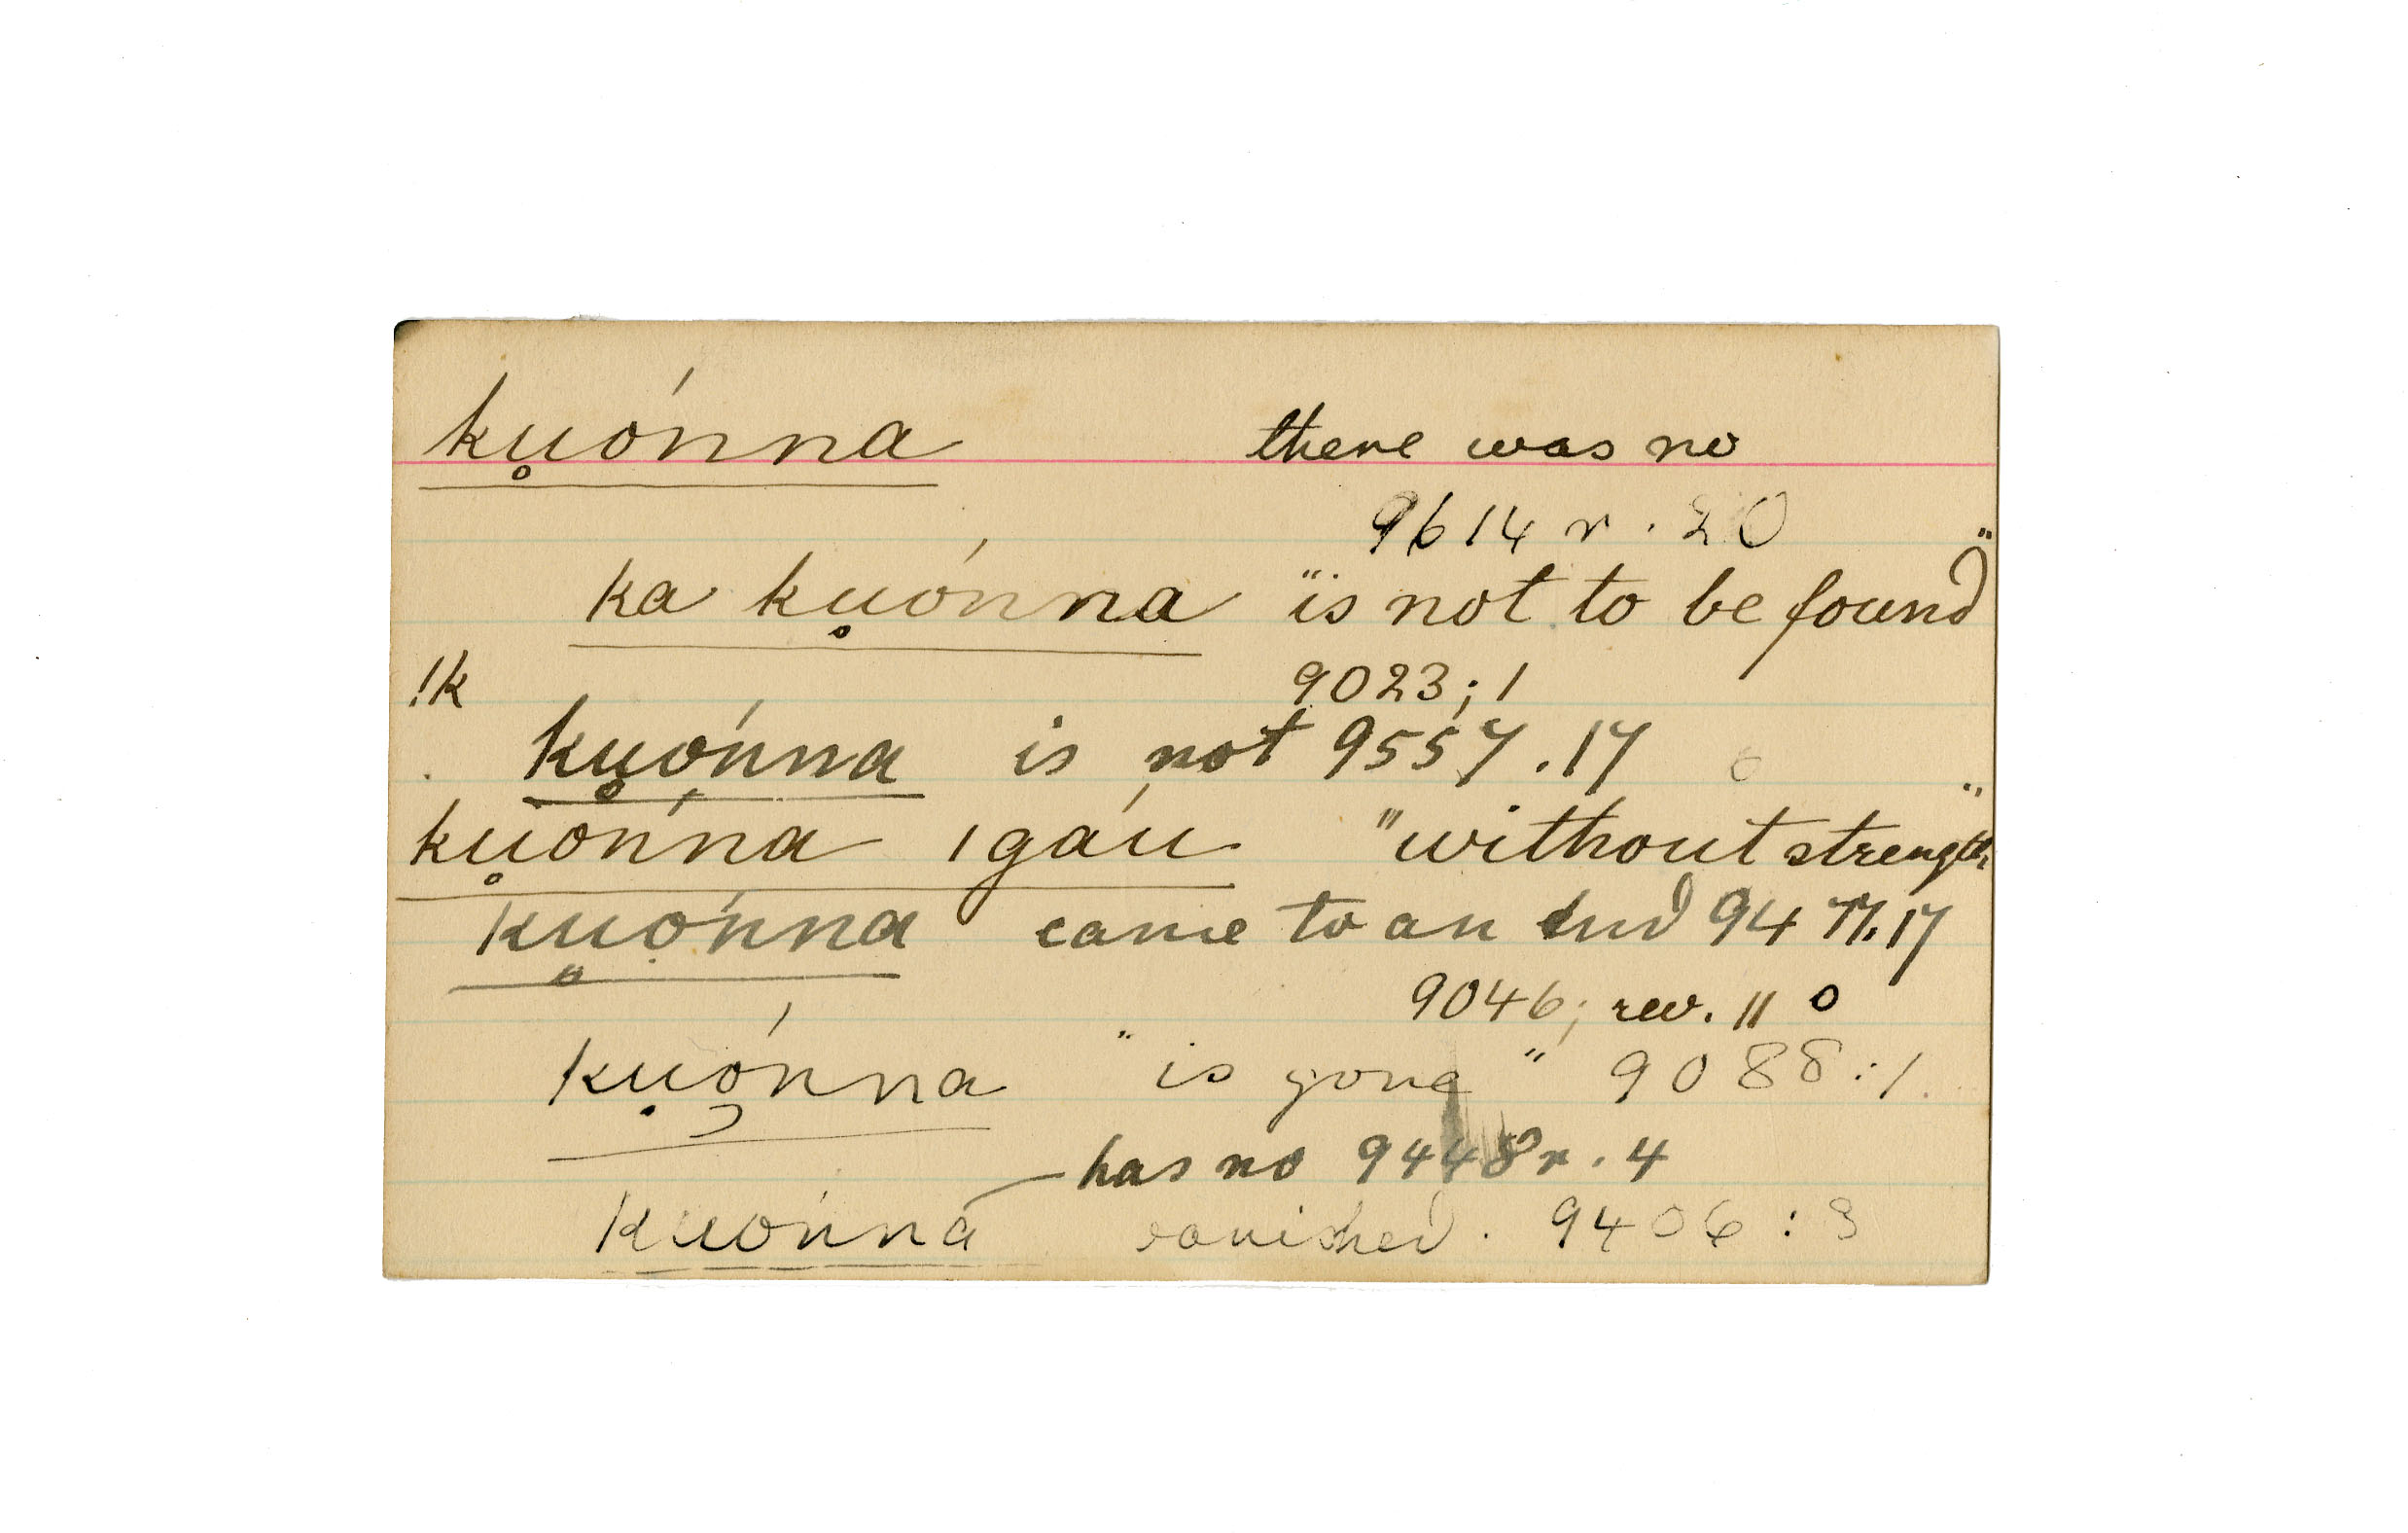 ku̥ónna there was no
9614 r. 20
ka ku̥ónna "is not to be found"
!k 9023; 1
ku̥ónna is not 9557.17
ku̥ónna ıgáu "without strength"
ku̥ónna came to an end 9477.17
9046; rev. 11 0
kụónna "is gone" 9088:1.
has no 9448r.4
kuónna vanished. 9406:3